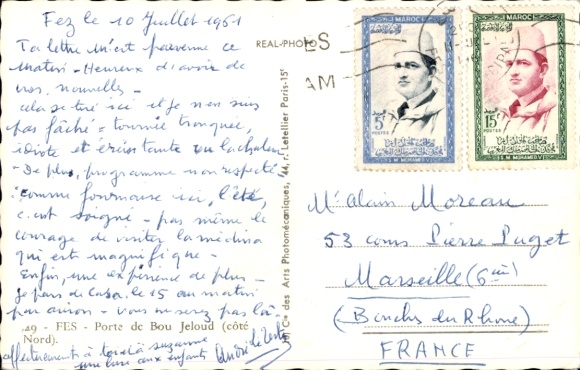 Fez le 10 Juillet 1961
Ta lettre m'est parvenue ce
matin - Heureux d'avoir de
vos nouvelles -
cela se tire ici et je n'en suis
pas fâché - tournée tronquée,
idiote et éreintante vu la chaleur
- De plus, programme non respecté
Comme fournaise ici, l'été,
c'est soigné - pas même le
courage de visiter la médina
qui est magnifique -
Enfin, une expérience de plus -
Je pars de Casa, le 15 au matin
par avion - Vous ne serez pas là -
29 - FES - Porte de Bou Jeloud (côté
Nord).
affectueusement à toi et à Suzanne
une bise aux enfants André
REAL-PHOTO
Cie des Arts Photomécaniques, 44, r. Letellier Paris-15e
ES
AM
MAROC
5F
POSTES
S. M. MOHAMED V
MAROC
15F
POSTES
S. M. MOHAMED V
Mr Alain Moreau
53 cours Pierre Puget
Marseille (6ème)
(Bouches du Rhône)
FRANCE